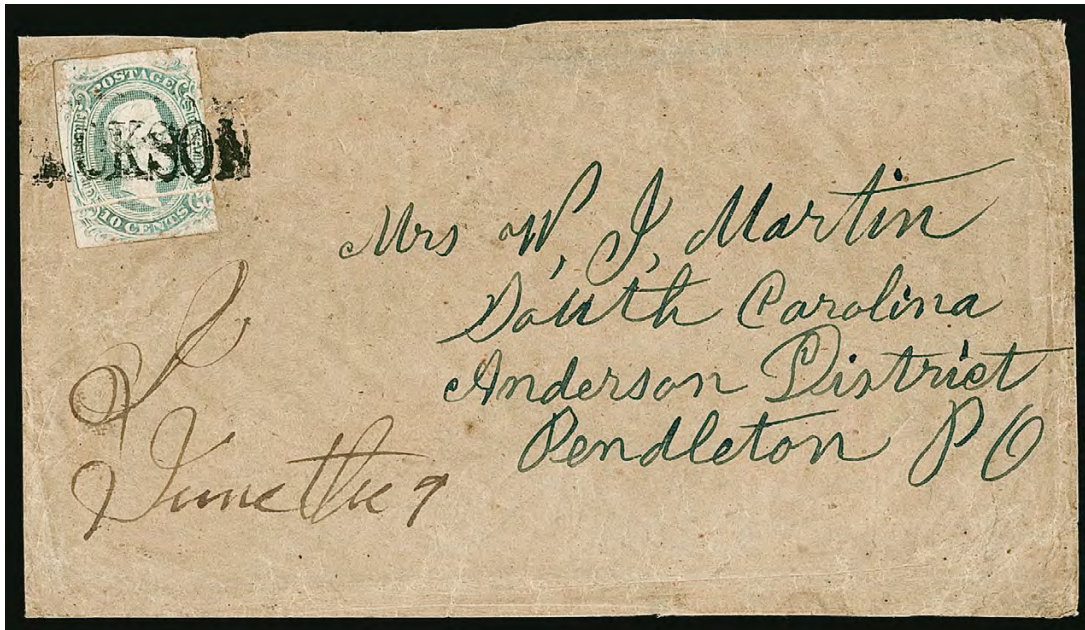 POSTAGE
JACKSON
10 CENTS
Mrs W, J, Martin
South Carolina
Anderson District
Pendleton P O
June the 9